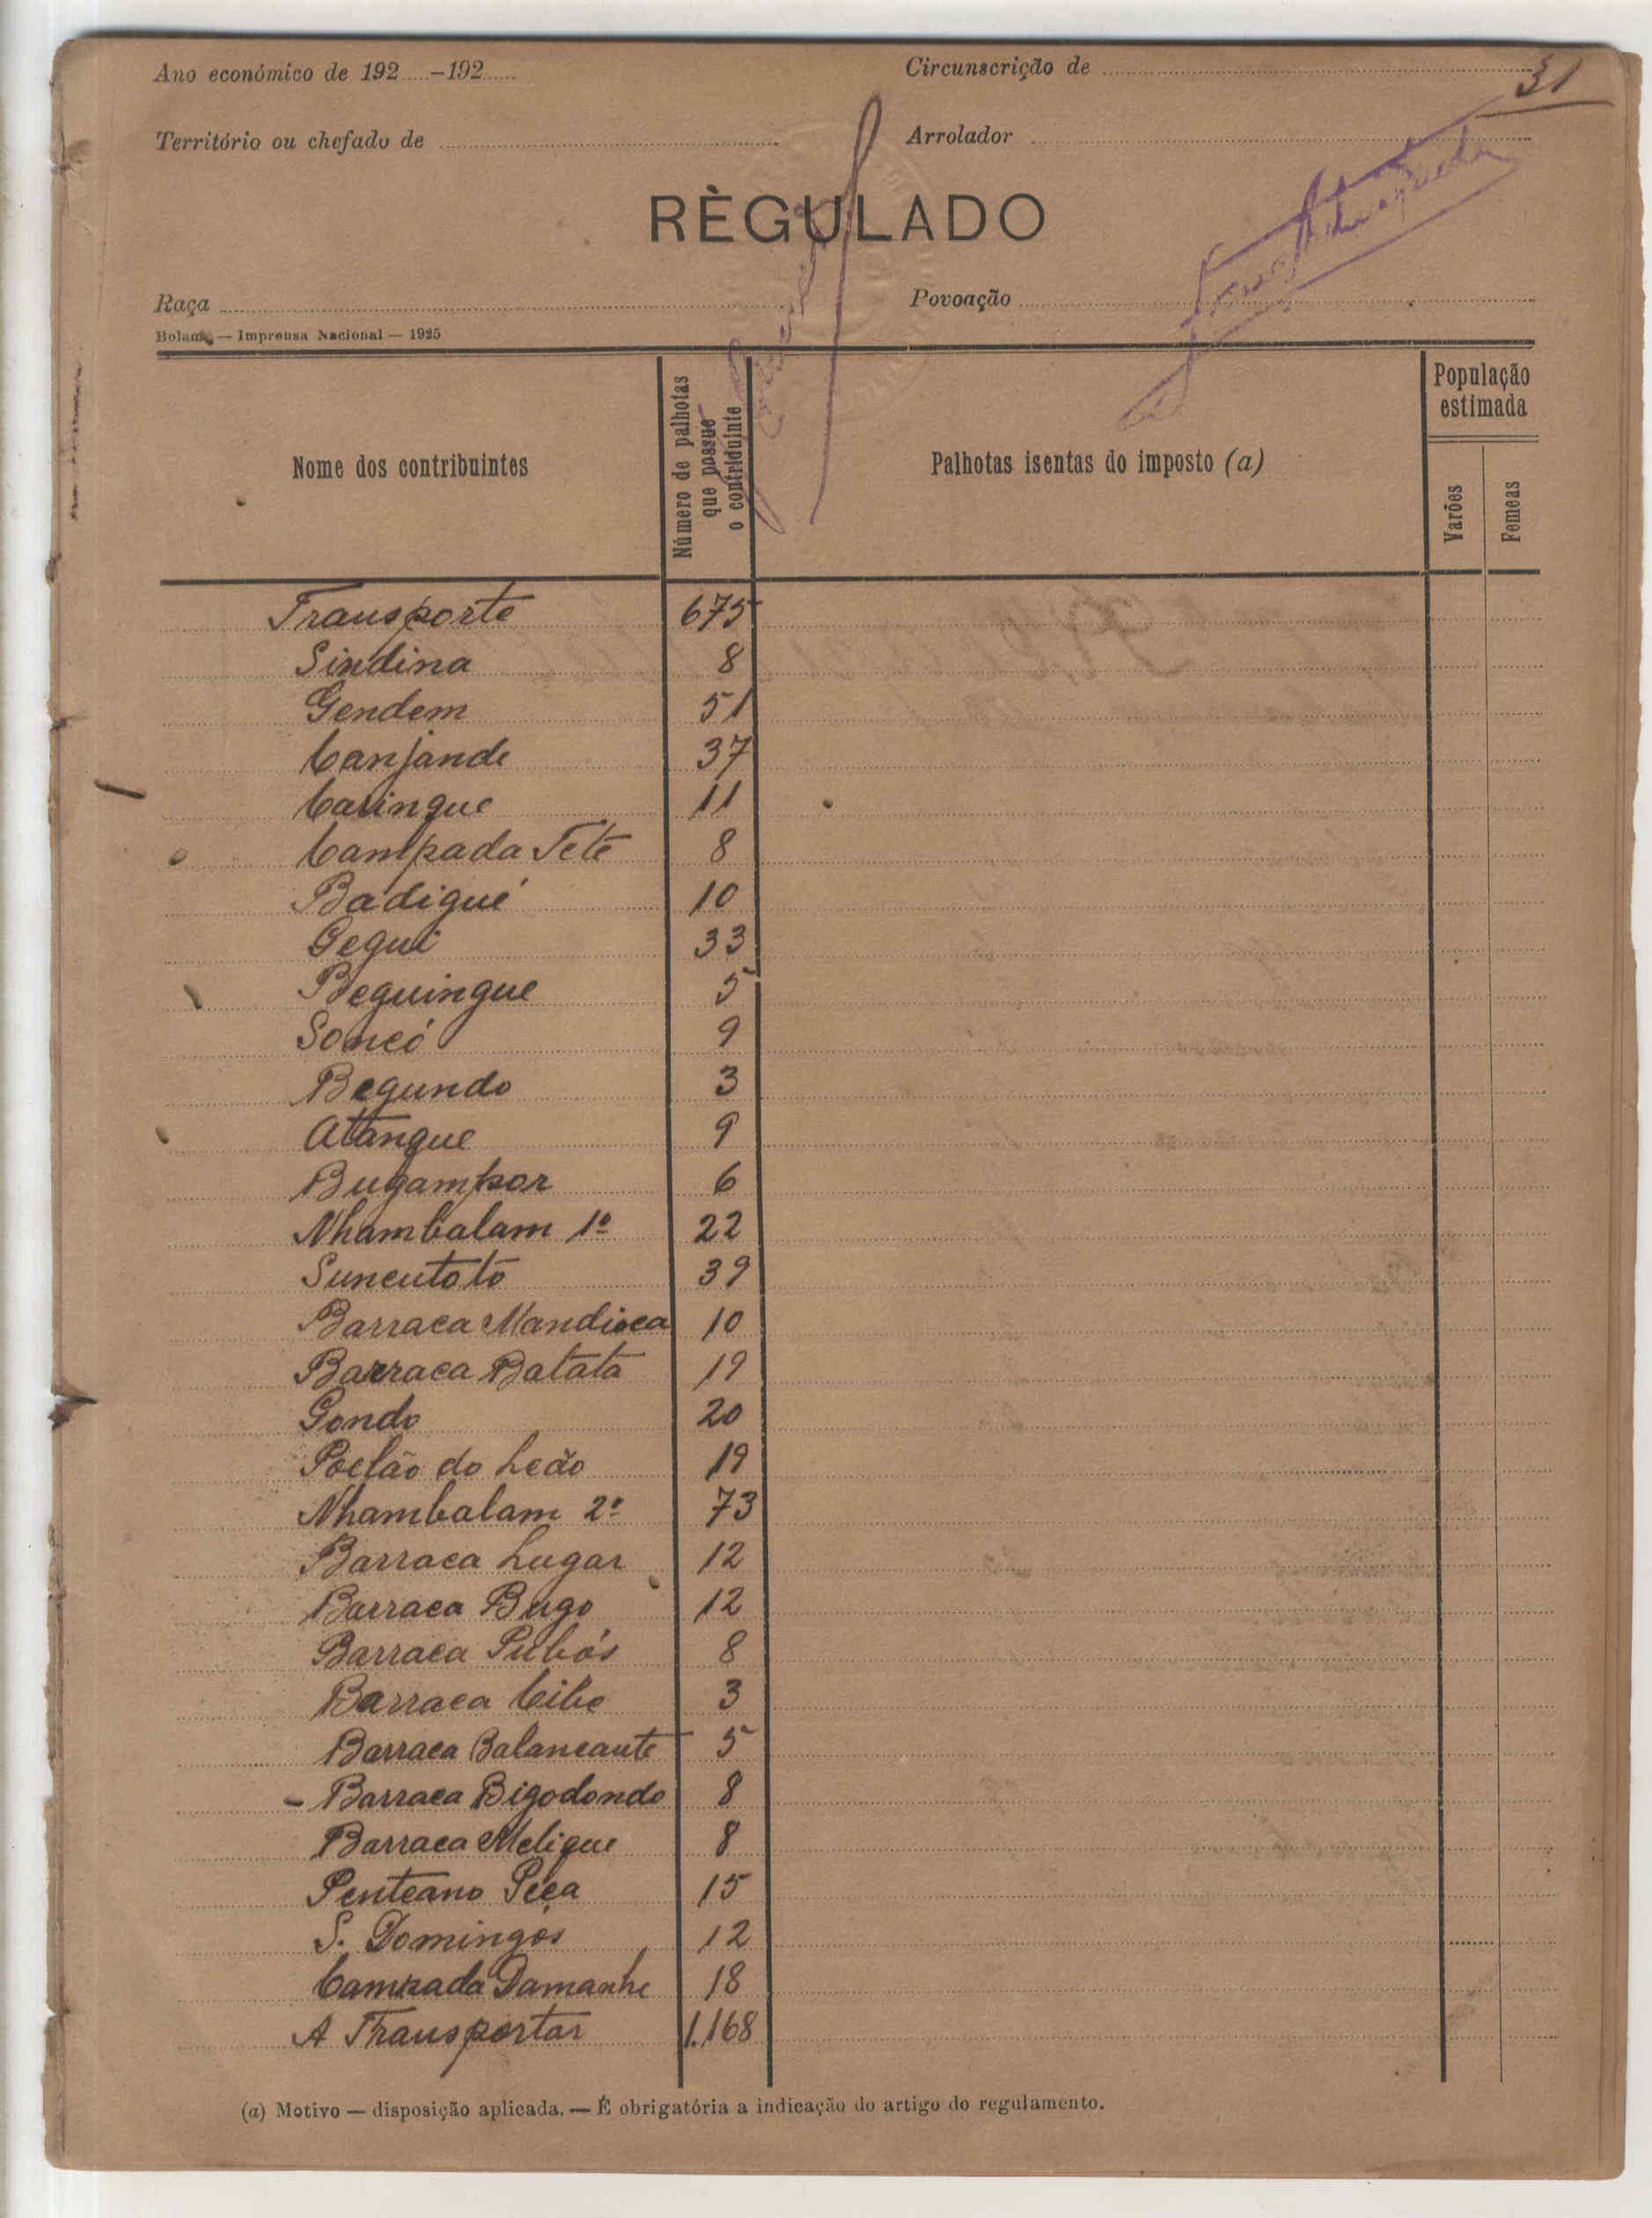 Ano económico de 192.....-192.....
Circunscrição de
31
Território ou chefado de
Arrolador
RÈGULADO
Raça
Povoação
Bolama — Imprensa Nacional — 1925
Nome dos contribuintes
Número de palhotas que possue o contriduinte
Palhotas isentas do imposto (a)
População estimada
Varões
Femeas
Transporte 675
Sindina 8
Gendem 51
Canjande 37
Caringue 11
Campada Tete 8
Badigué 10
Gegui 33
Beguingue 5
Soncó 9
Begundo 3
Atangue 9
Bugampor 6
Nhambalam 1º 22
Suncutoto 39
Barraca Mandioca 10
Barraca Batata 19
Gondo 20
Poelão do Leão 19
Nhambalam 2º 73
Barraca Lugar 12
Barraca Bugo 12
Barraca 8
Barraca Cibe 3
Barraca Balancante 5
- Barraca Bigodondo 8
Barraca Meligue 8
Penteano Peça 15
S. Domingos 12
Campada Damanhe 18
A Transportar 1.168
(a) Motivo — disposição aplicada. — É obrigatória a indicação do artigo do regulamento.